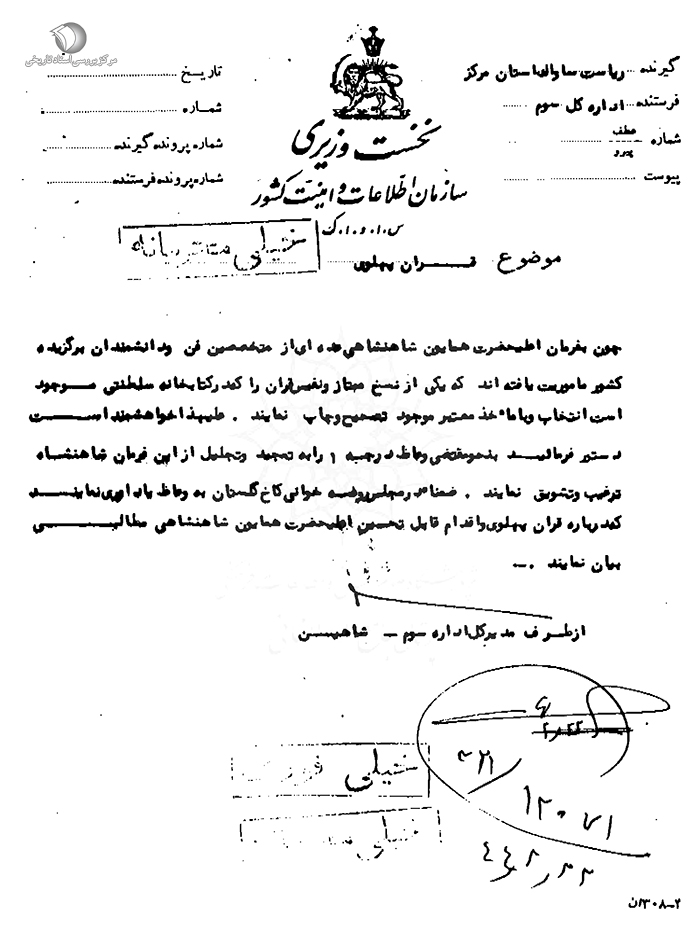 مرکز بررسی اسناد تاریخی
گیرنده ریاست ساواک استان مرکز
فرستنده اداره کل سوم
شماره عطف پیرو
پیوست
تاریخ
شماره
شماره پرونده گیرنده
شماره پرونده فرستنده
نخست وزیری
سازمان اطلاعات و امنیت کشور
س.ا.و.ا.ک
خیلی محرمانه
موضوع قران پهلوی
چون بفرمان اعلیحضرت همایون شاهنشاهی عده ای از متخصصین فن ودانشمندان برگزیده
کشور ماموریت یافته اند که یکی از نسخ ممتاز ونفیس قران را که در کتابخانه سلطنتی موجود
است انتخاب وبا مآخذ معتبر موجود تصحیح وچاپ نمایند . علیهذا خواهشمند است
دستور فرمائید بنحو مقتضی وعاظ درجه ۱ را به تمجید وتجلیل از این فرمان شاهنشاه
ترغیب وتشویق نمایند . ضمنا در مجلس روضه خوانی کاخ گلستان به وعاظ یاد اوری نمایند
که درباره قران پهلوی واقدام قابل تحسین اعلیحضرت همایون شاهنشاهی مطالبی
بیان نمایند .
ازطرف مدیرکل اداره سوم - شاهین
خیلی فوری
خیلی
۴۴٫۲٫۲۳
۲-۱۳۰۸ن